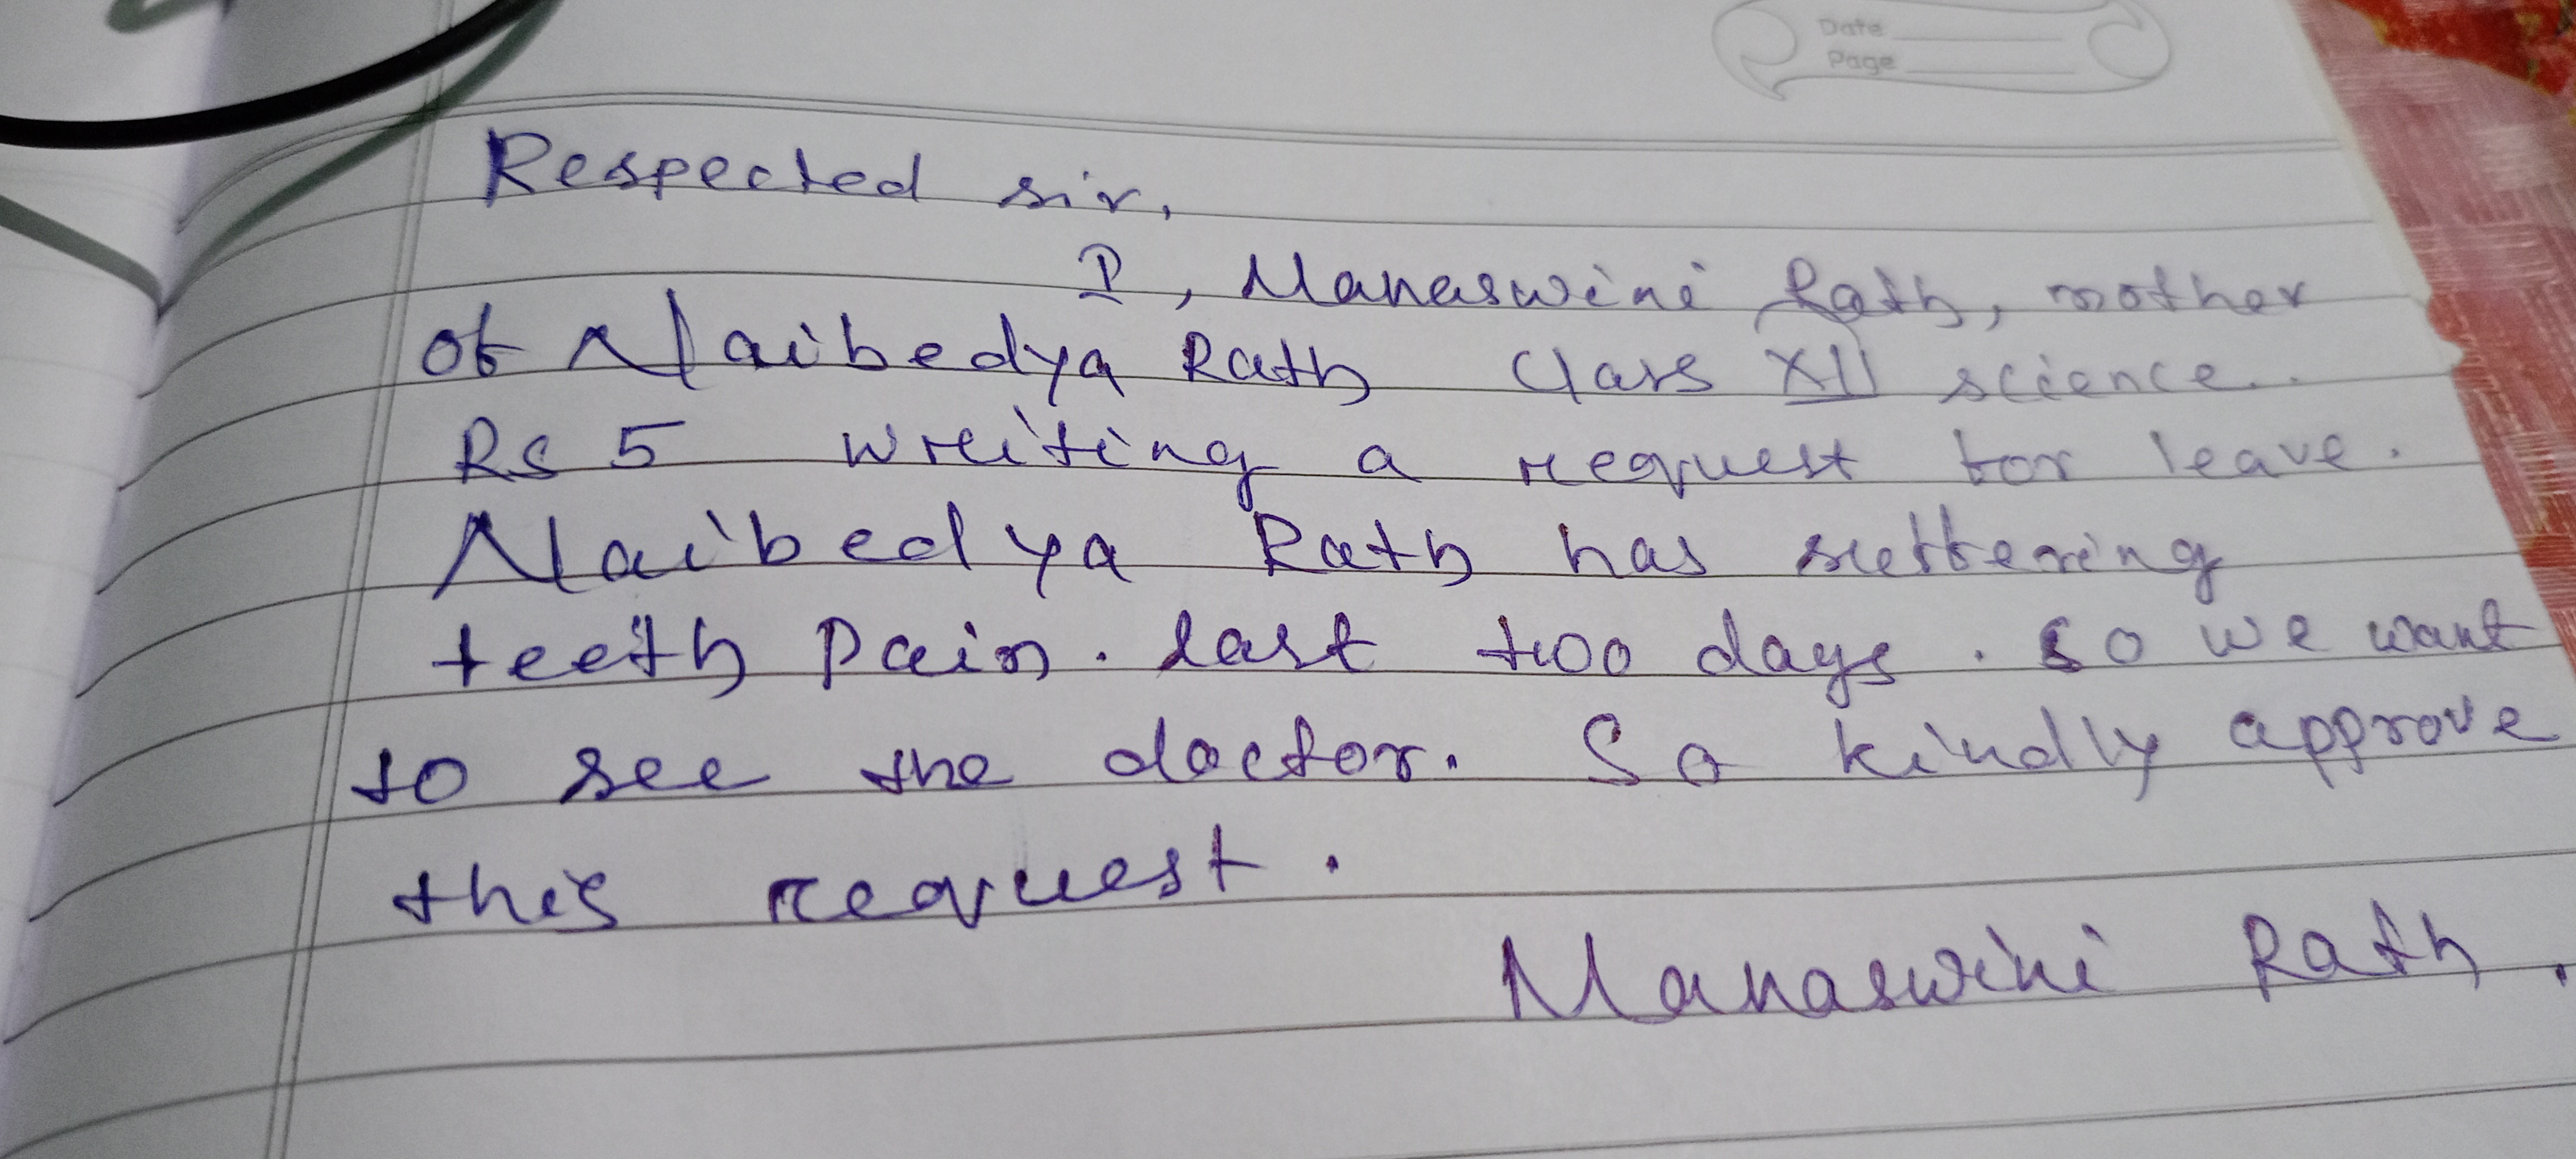 Date
Page
Respected sir,
I, Manaswini Rath, mother
of Naibedya Rath Class XII science..
RS 5 writing a request for leave.
Naibedya Rath has suffering
teeth pain. last two days. So we want
to see the doctor. So kindly approve
this request.
Manaswini Rath.